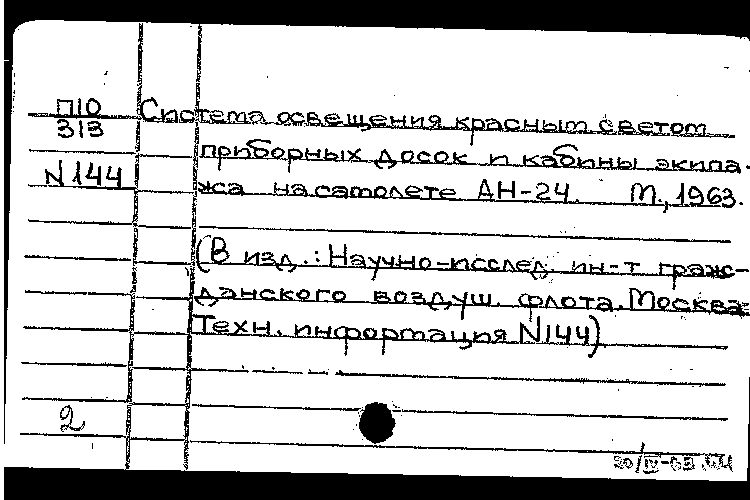 П10
313
N 144
Система освещения красным светом
приборных досок и кабины экипа-
жа на самолете АН-24. М., 1963.
(В изд.: Научно-исслед. ин-т граж-
данского воздуш. флота. Москва.
Техн. информация N144)
2